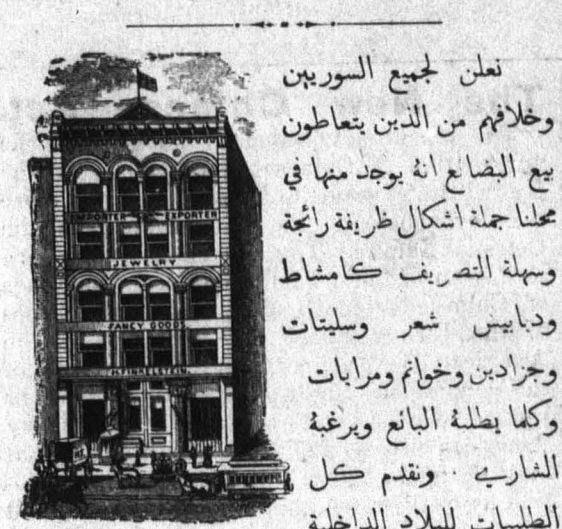 نعلن لجميع السوريين
وخلافهم من الذين يتعاطون
بيع البضايع انهُ يوجد منها في
محلنا جملة اشكال ظريفة رائجة
وسهلة التصريف كامشاط
ودبابيس شعر وسليتات
وجزادين وخواتم ومرايات
وكلما يطلبهُ البائع ويرغبهُ
الشاري ٠٠ ونقدم كل
الطلبات للبلاد الداخلية
IMPORTER EXPORTER
JEWELRY
FANCY GOODS
H. FINKELSTEIN.